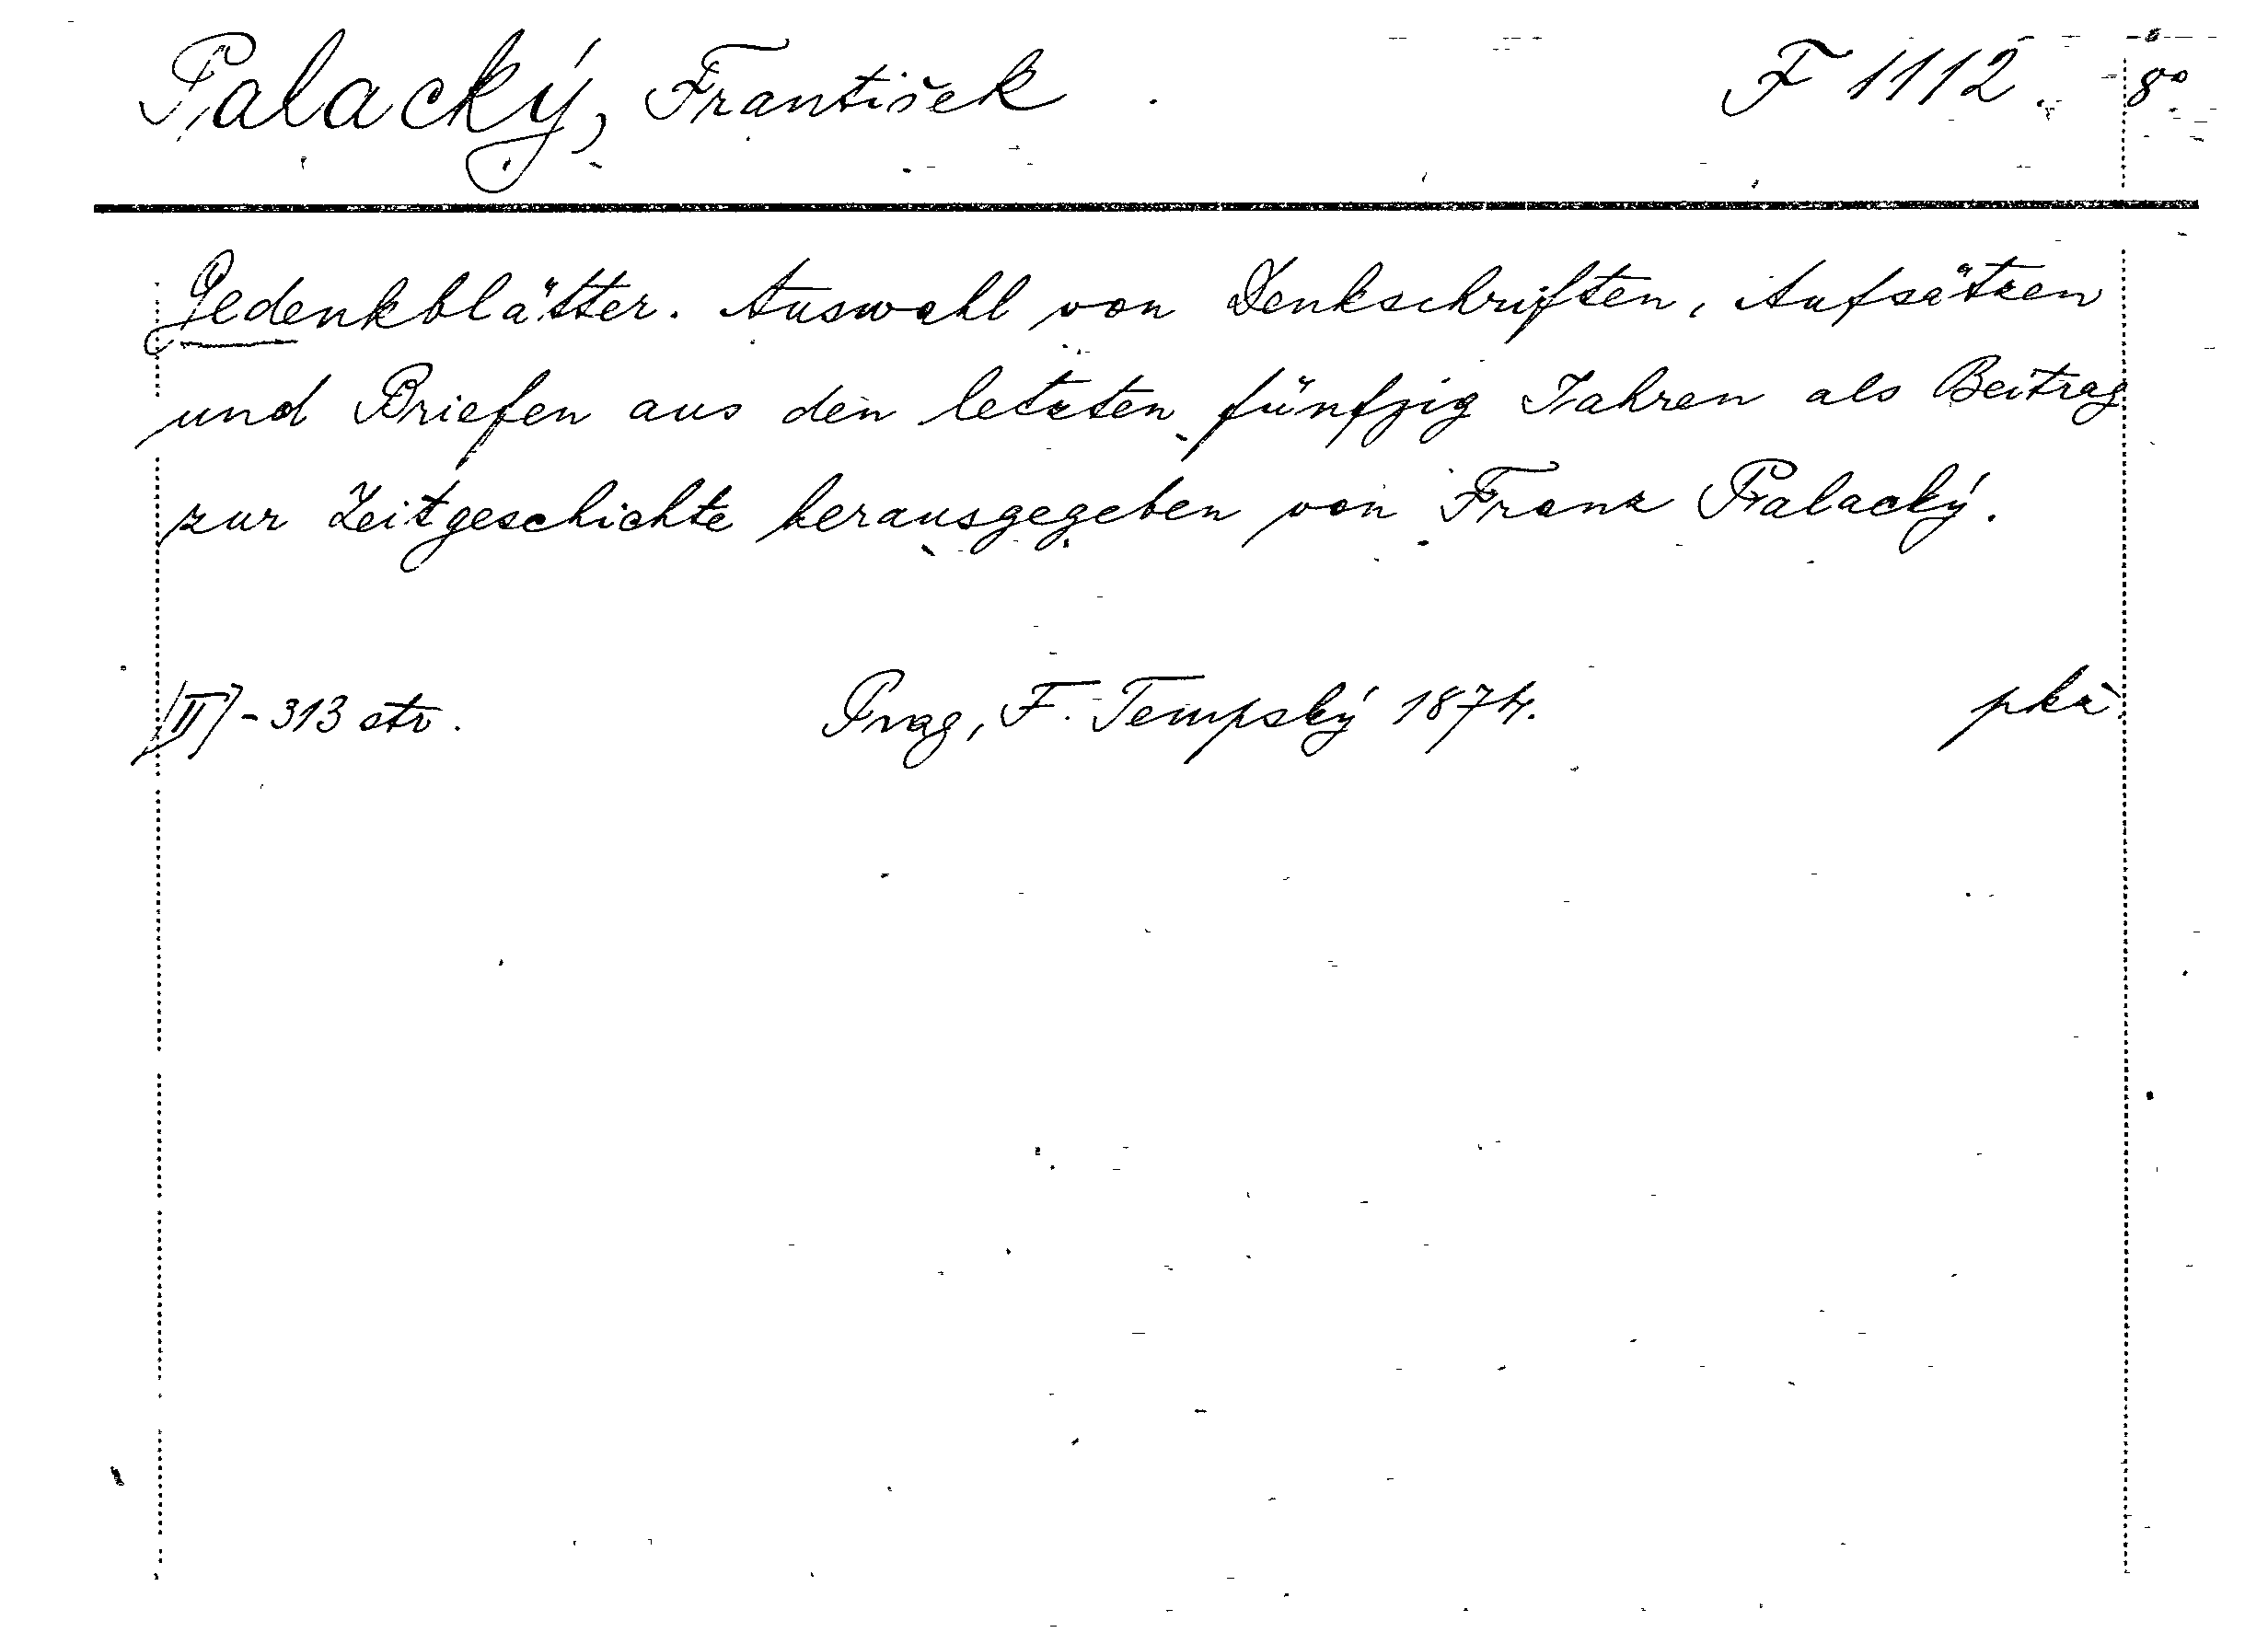 Palacký, František F 1112. 8°
Gedenkblätter. Auswahl von Denkschriften, Aufsätzen
und Briefen aus den letzten fünfzig Jahren als Beitrag
zur Zeitgeschichte herausgegeben von Franz Palacký.
[II] - 313 str. Prag, F. Tempský 1874. pka.